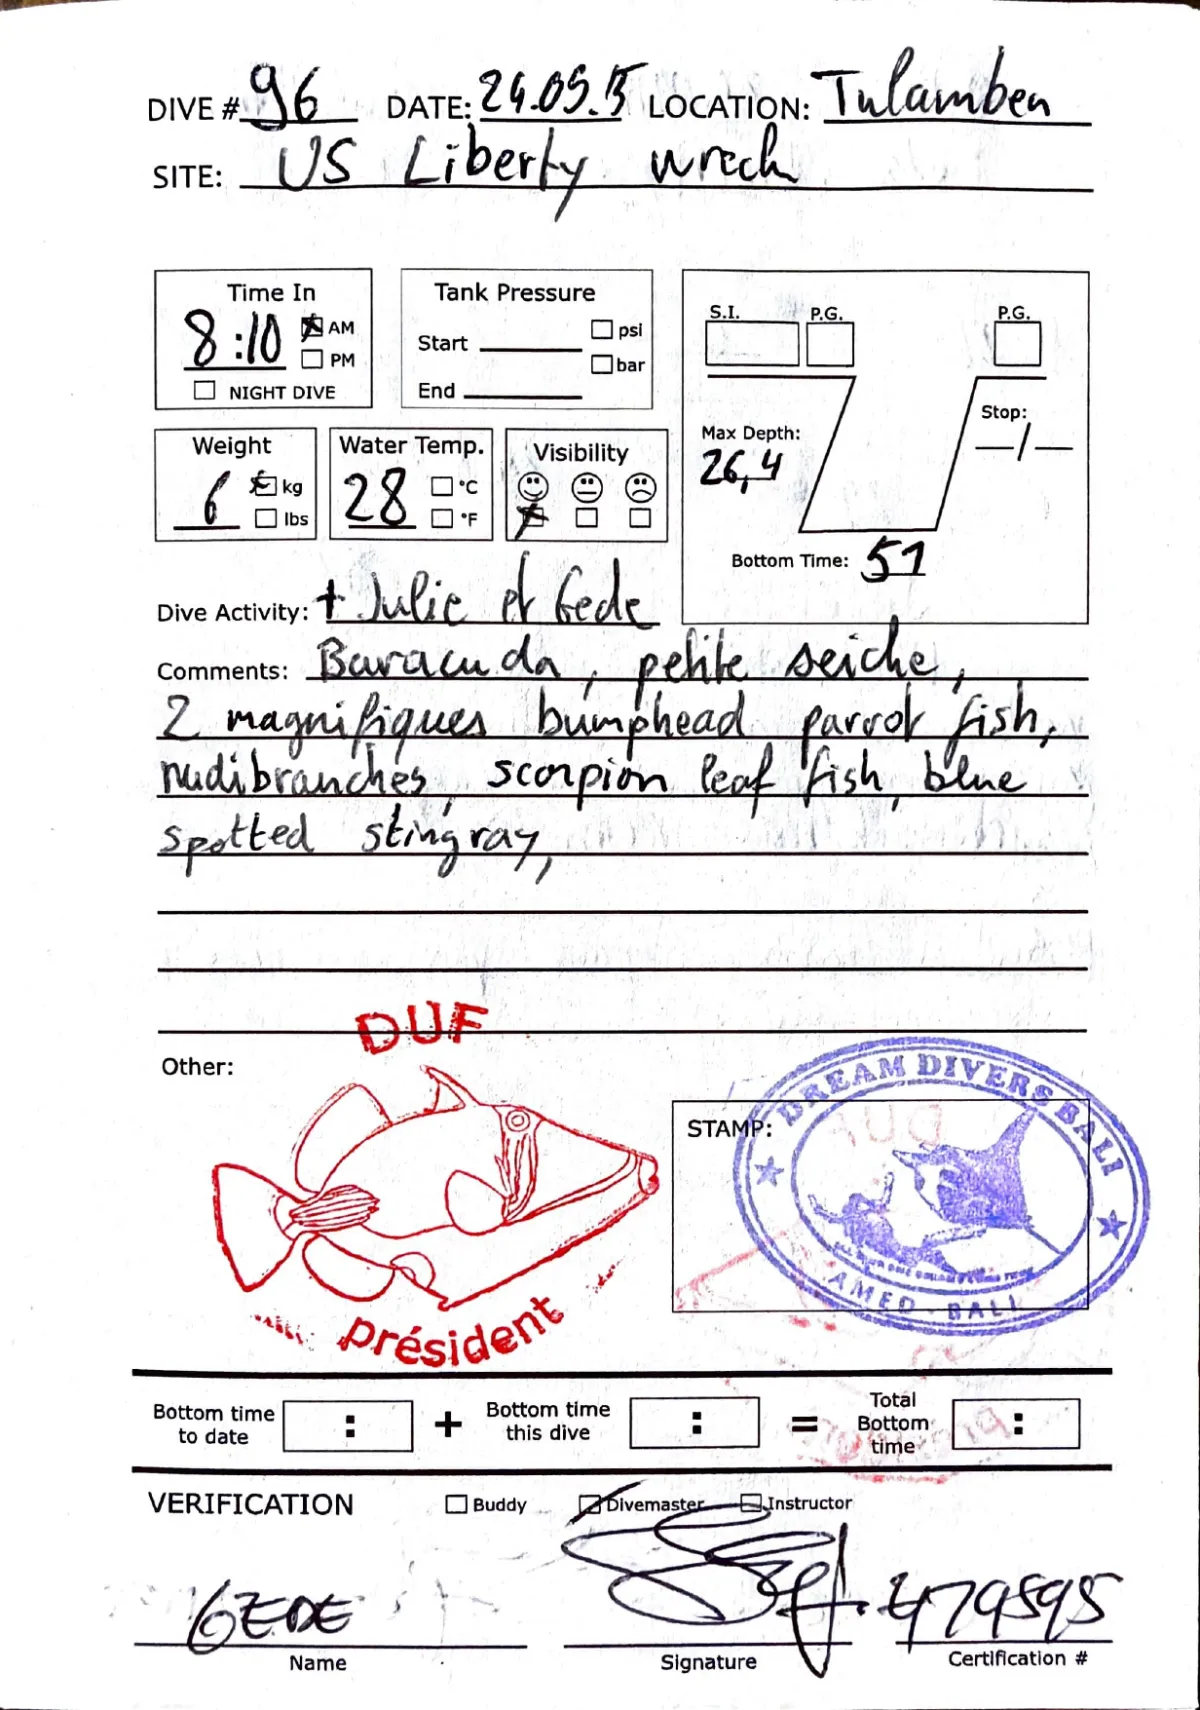 DIVE # 96 DATE: 24.05.15 LOCATION: Tulamben
SITE: US Liberty wreck
Time In
8:10 AM
PM
NIGHT DIVE
Tank Pressure
Start psi
bar
End
S.I. P.G. P.G.
Max Depth:
26,4
Stop:
Bottom Time: 51
Weight
6 kg
lbs
Water Temp.
28 °C
°F
Visibility
Dive Activity: + Julie et Gede
Comments: Baracuda, petite seiche,
2 magnifiques bumphead parrot fish,
nudibranches, scorpion leaf fish, blue
spotted stingray,
Other:
DUF
président
STAMP:
DREAM DIVERS BALI
AMED - BALI
Bottom time
to date
:
+
Bottom time
this dive
:
=
Total
Bottom
time
:
VERIFICATION Buddy Divemaster Instructor
GEDE 479595
Name Signature Certification #